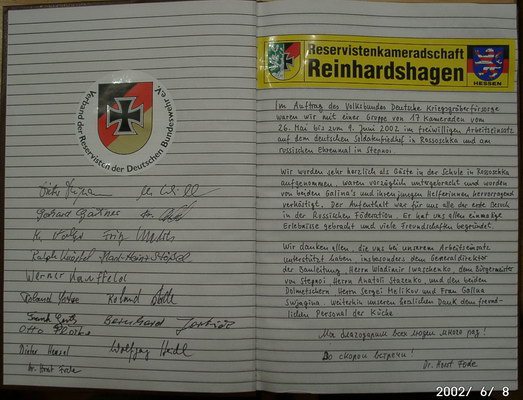 Verband der Reservisten der Deutschen Bundeswehr e.V.
Werner Hauffeld
Roland
Otto
Bernhard
Dieter Hensel
Wolfgang
Dr. Horst Fode
Reservistenkameradschaft
Reinhardshagen
HESSEN
Im Auftrag des Volksbundes Deutsche Kriegsgräberfürsorge
waren wir mit einer Gruppe von 17 Kameraden vom
26. Mai bis zum 9. Juni 2002 im freiwilligen Arbeitseinsatz
auf dem deutschen Soldatenfriedhof in Rossoschka und am
russischen Ehrenmal in Stepnoi.
Wir wurden sehr herzlich als Gäste in der Schule in Rossoschka
aufgenommen, waren vorzüglich untergebracht und wurden
von beiden Galina's und ihren jungen Helferinnen hervorragend
verköstigt. Der Aufenthalt war für uns alle der erste Besuch
in der Russischen Föderation. Er hat uns allen einmalige
Erlebnisse gebracht und viele Freundschaften begründet.
Wir danken allen, die uns bei unserem Arbeitseinsatz
unterstützt haben, insbesondere dem Generaldirektor
der Bauleitung, Herrn Wladimir Iwaschenko, dem Bürgermeister
von Stepnoi, Herrn Anatoli Stazenko, und den beiden
Dolmetschern, Herrn Sergei Melikov und Frau Galina
Swjagina. Weiterhin unseren herzlichen Dank dem freund-
lichen Personal der Küche
Мы благодарим всех людей много раз!
До скорой встречи!
Dr. Horst Fode
2002/ 6/ 8